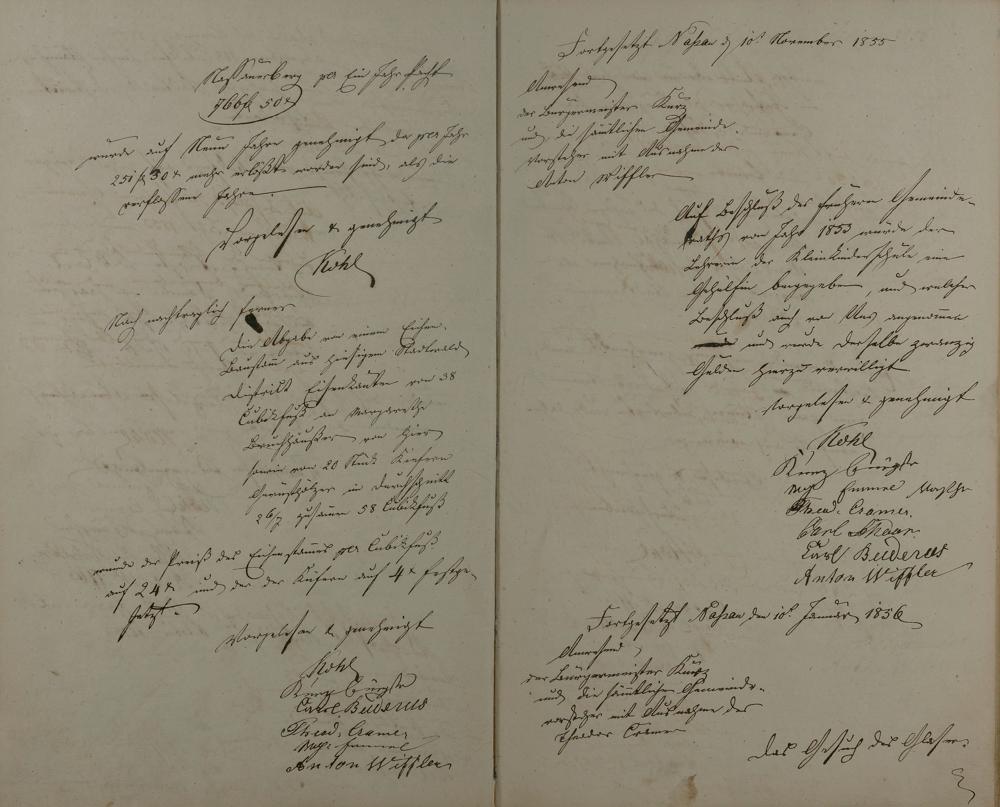 Nassauerberg per Ein Jahr Pacht
766 fl 50 x
wurde auf Neun Jahre genehmigt da per Jahr
251 fl 30 x mehr erlößt worden sind, als die
verflossene Jahre.
Vorgelesen & genehmigt
Kohl
Nach nachtraglich ferner
Die Abgabe von einem Eichen-
Baustamm aus hiesigem Stadtwald
District Eisenkauten von 38
Cubikfuß an Margarethe
Bruchhäußer von hier
sowie von 20 Stück Kiefern
Gerüsthölzer im Durchschnitt
zusamen 58 Cubikfuß
wurde der Preiß des Eichenstammes per Cubikfuß
auf 24 x und der der Kiefern auf 4 x festge-
setzt.
Vorgelesen & genehmigt
Kohl
Kurz Bürgstr
Carl Buderus
Theod. Cramer
Anton Wiffler
Fortgesetzt Naßau d 10t November 1855
Anwesend
der Bürgermeister Kurz
und die sämtlichen Gemeinde-
vorsteher mit Ausnahme des
Anton Wiffler
Auf Beschluß des frühern Gemeinde-
raths vom Jahr 1853 wurde der
Lehrerin der Kleinkinderschule eine
Gehülfin beigegeben, und welcher
Beschluß auch von Uns angenommen
und wurde derselbe zwanzig
Gulden hierzu verwilligt
Vorgelesen & genehmigt
Kohl
Kurz Bürgstr
Theod. Cramer.
Carl
Carl Buderus
Anton Wiffler
Fortgesetzt Naßau den 10t Januar 1856
Anwesend
der Bürgermeister Kurz
und die sämmtlichen Gemeinde-
vorsteher mit Ausnahme des
Theodor Cramer
Das Gesuch des Glaser-